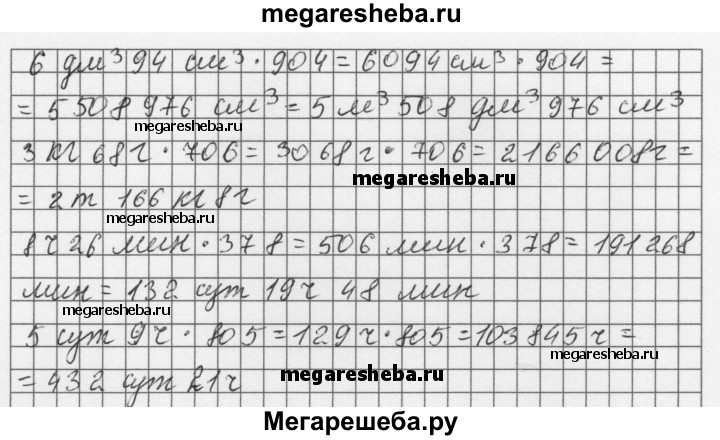 megaresheba.ru
6 дм³ 94 см³ · 904 = 6094 см³ · 904 =
= 5 508 976 см³ = 5 м³ 508 дм³ 976 см³
megaresheba.ru
3 кг 68 г · 706 = 3068 г · 706 = 2166 008 г =
megaresheba.ru
= 2 т 166 кг 8 г
megaresheba.ru
8 ч 26 мин · 378 = 506 мин · 378 = 191 268
мин = 132 сут 19 ч 48 мин
megaresheba.ru
5 сут 9 ч · 805 = 129 ч · 805 = 103 845 ч =
megaresheba.ru
= 432 сут 21 ч
megaresheba.ru
Мегарешеба.ру